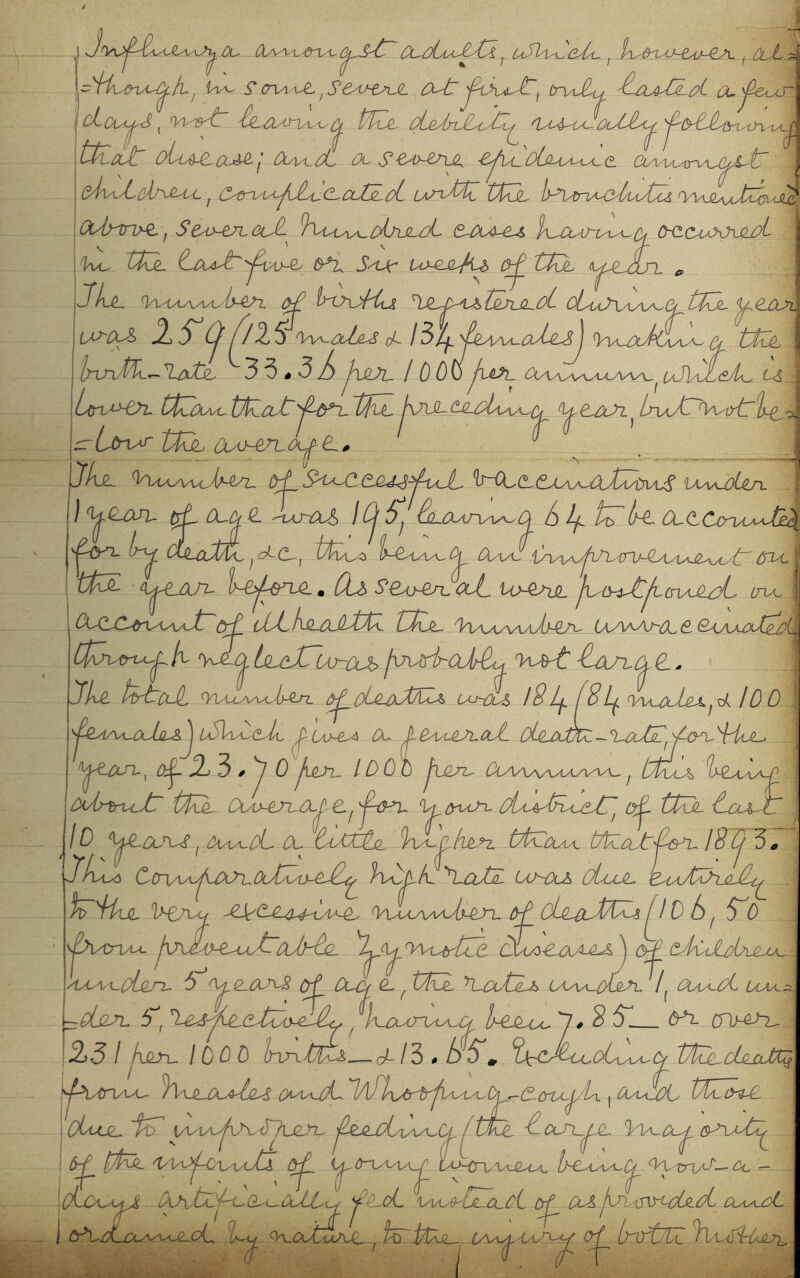 Influenza amongst adults, which, however, al=
=though, in some, severe at first, only lasted a few
days, not leaving the debility usually following
that disease; and a severe epidemic amongst
children, complicated with the bronchitis mentioned
above, several hundred cases having occurred
in the last five or six weeks of the year.
The number of births registered during the year
was 259 (125 males & 134 females) making the
birth-rate 33.36 per 1000 per annum, which is
lower than that for the preceding year, but not be=
=low the average.
The number of successful vaccinations under
1 year of age was 195, leaving 64 to be accounted
for by death, &c., this being an improvement on
the year before. As several were postponed on
account of ill health the number unvaccinated
through neglect was probably not large.
The total number of deaths was 184 (84 males, & 100
females) which gives a general death-rate, for the
year, of 23.70 per 1000 per annum, this being
about the average, for your district, of the last
10 years, and a little higher than that for 1893.
This comparatively high rate was due entirely
to the very excessive number of deaths (106, 50
from preventable zymotic diseases) of children
under 5 years of age, the rates under 1, and un=
=der 5, respectively, having been 7.85 — or over
231 per 1000 births — & 13.65. Excluding the deaths
from Measles and Whooping-Cough, and those
due to improper feeding (the large majority
of the infants of young women being now-a-
days artificially fed instead of as provided and
ordained by nature, to the injury of both mother